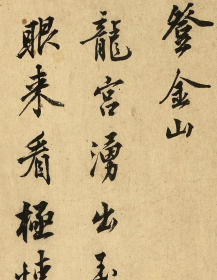 登金山
龍宮湧出
眼来看極